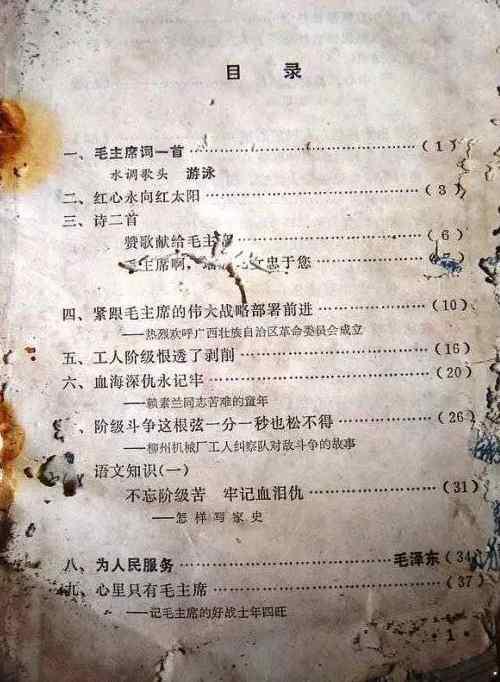 目录
一、毛主席词一首……(1)
水调歌头 游泳
二、红心永向红太阳……(3)
三、诗二首
赞歌献给毛主席……(6)
主席啊，忠于您
四、紧跟毛主席的伟大战略部署前进……(10)
——热烈欢呼广西壮族自治区革命委员会成立
五、工人阶级恨透了剥削……(16)
六、血海深仇永记牢……(20)
——赖素兰同志苦难的童年
、阶级斗争这根弦一分一秒也松不得……(26)
——柳州机械厂工人纠察队对敌斗争的故事
语文知识(一)
不忘阶级苦 牢记血泪仇……(31)
——怎样写家史
八、为人民服务……毛泽东(34)
九、心里只有毛主席……(37)
——记毛主席的好战士年四旺
·1·